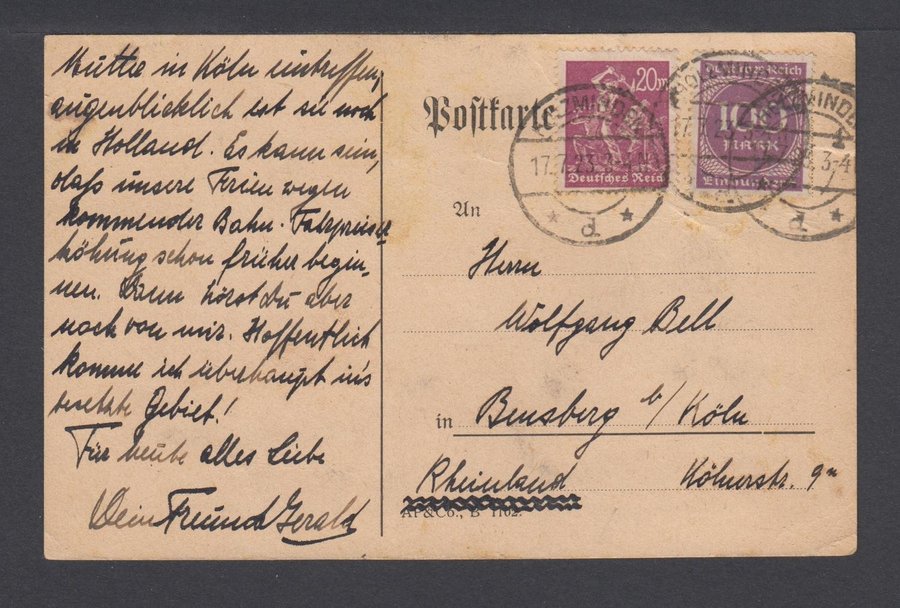 Mutter in Köln eintreffen,
augenblicklich ist sie noch
in Holland. Es kann sein,
dass unsere Ferien wegen
kommender Bahn-Fahrpreiser
höhung schon früher begin-
nen. Dann hörst du aber
noch von mir. Hoffentlich
komme ich überhaupt in's
besetzte Gebiet!
Für heute alles Liebe
Dein Freund Gerald
Postkarte
20 M
Deutsches Reich
Deutsches Reich
100
MARK
Einhundert
HOLZMINDEN
17.7.23. 3-4 N
* d *
HOLZMINDEN
17.7.23
HOLZMINDEN
3-4
* d *
An
Herrn
Wolfgang Bell
in Bensberg b/Köln
Rheinland Kölnerstr. 9
AP&Co., B 1102.